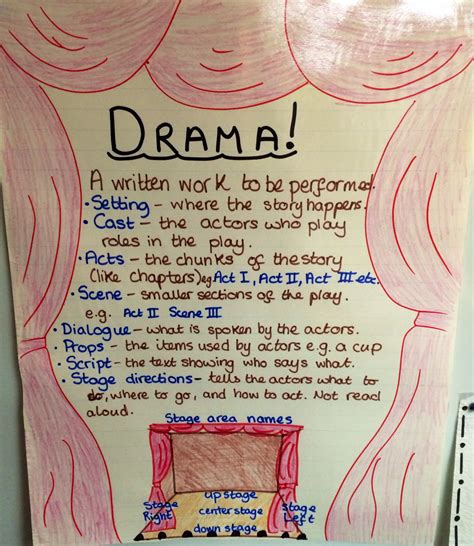 DRAMA!
A written work to be performed.
• Setting – where the story happens.
• Cast – the actors who play
roles in the play.
• Acts – the chunks of the story
(like chapters) eg Act I, Act II, Act III etc.
• Scene – smaller sections of the play.
e.g. Act II Scene III
• Dialogue – what is spoken by the actors.
• Props – the items used by actors e.g. a cup
• Script – the text showing who says what.
• Stage directions – tells the actors what to
do, where to go, and how to act. Not read
aloud.
Stage area names
upstage
Stage Right
center stage
Stage Left
down stage